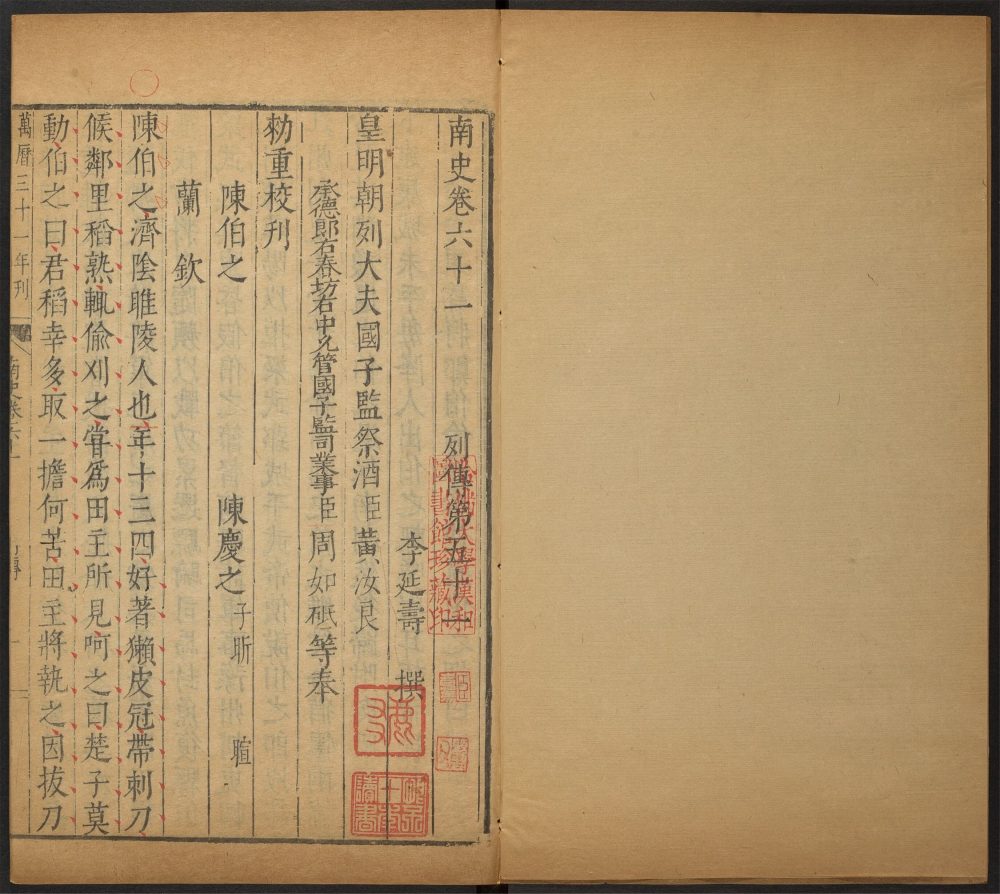 南史卷六十一
列傳第五十一
李延壽 撰
皇明朝列大夫國子監祭酒臣黃汝良
承德郎右春坊右中允管國子監司業事臣周如砥等奉
勑重校刊
陳伯之
陳慶之 子昕 暄
蘭欽
陳伯之濟陰睢陵人也年十三四好著獺皮冠帶刺刀
候鄰里稻熟輒偷刈之嘗爲田主所見呵之曰楚子莫
動伯之曰君稻幸多取一擔何苦田主將執之因拔刀
萬曆三十一年刊
南史卷六十一